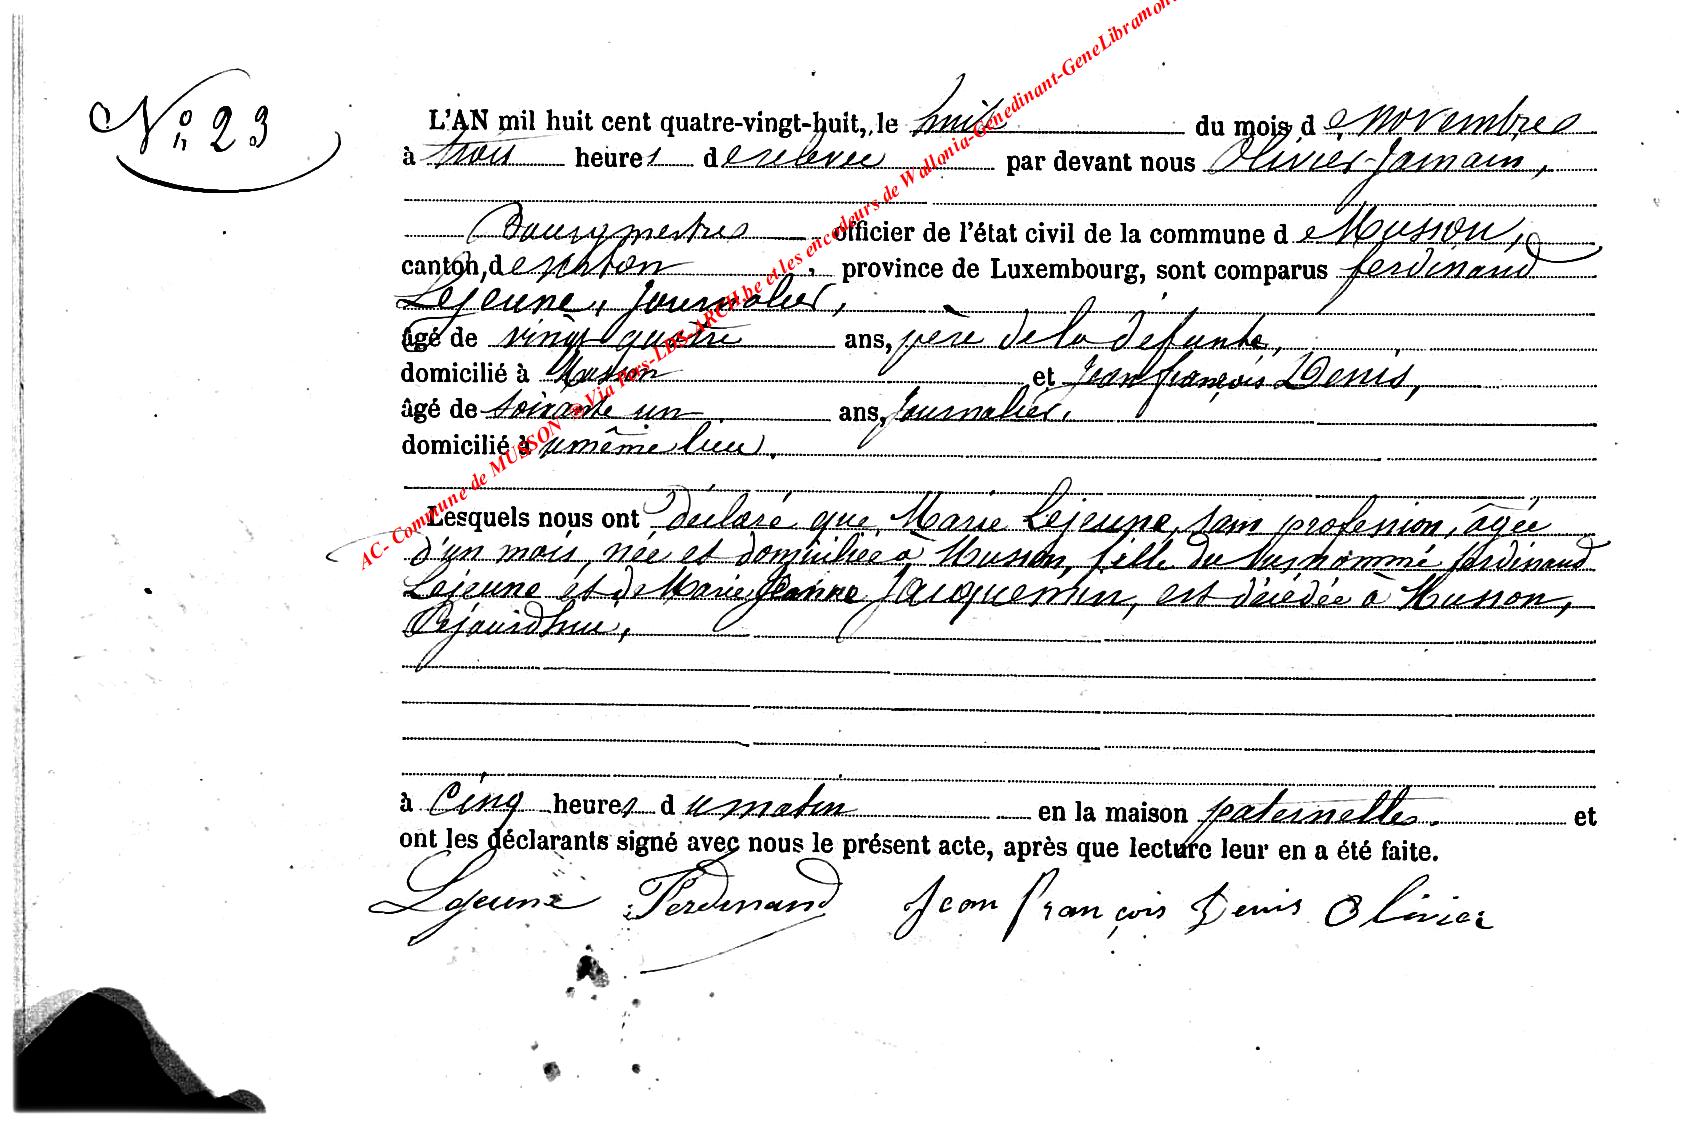 N° 23
L'AN mil huit cent quatre-vingt-huit, le huit du mois de novembre
à trois heures de relevée par devant nous Olivier Jamain,
Bourgmestre officier de l'état civil de la commune de Musson,
canton, de Virton, province de Luxembourg, sont comparus ferdinand
Lejeune, journalier,
âgé de vingt quatre ans, père de la défunte,
domicilié à Musson et Jean françois Denis,
âgé de soixante un ans, journalier.
domicilié au même lieu.
Lesquels nous ont déclaré que Marie Lejeune, sans profession, âgée
d'un mois, née et domiciliée à Musson, fille du susnommé ferdinand
Lejeune et de Marie Jeanne Jacquemin, est décédée à Musson,
Cejourd'hui,
à cinq heures du matin en la maison paternelle. et
ont les déclarants signé avec nous le présent acte, après que lecture leur en a été faite.
Lejeune Ferdinand Jean françois Denis Olivier
AC- Commune de MUSSON @ Via Pars-LDS-ARCH.be et les encodeurs de Wallonia-Genedinant-GeneLibramon